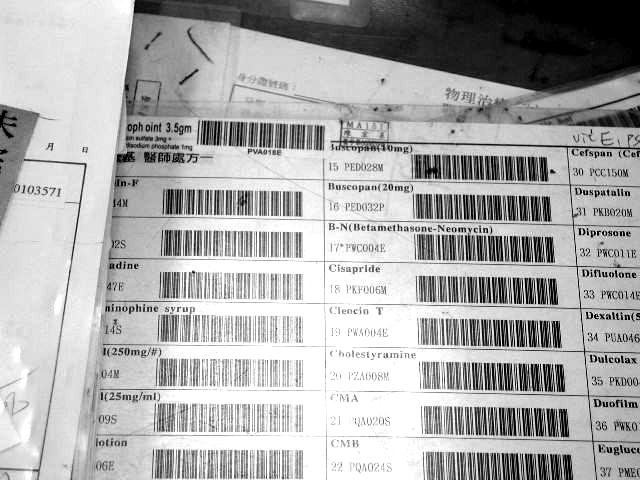 身分證號碼：
物理治
月 日
0103571
oph oint 3.5gm
sulfate 3mg +
disodium phosphate 1mg
PVA018E
醫師處方一
Buscopan(10mg)
15 PED028M
Buscopan(20mg)
16 PED032P
B-N(Betamethasone-Neomycin)
17*PWC004E
Cisapride
18 PKF006M
Cleocin T
19 PWA004E
Cholestyramine
20 PZA008M
CMA
21 PQA020S
CMB
22 PQA024S
in-F
14M
02S
adine
47E
minophine syrup
14S
l(250mg/#)
04M
l(25mg/ml)
09S
lotion
06E
Cefspan (Ce
30 PCC150M
Duspatalin
31 PKB020M
Diprosone
32 PWC011E
Difluolone
33 PWC014E
Dexaltin(5
34 PUA046
Dulcolax
35 PKD00
Duofilm
36 PWK0
Euglu
37 PME0